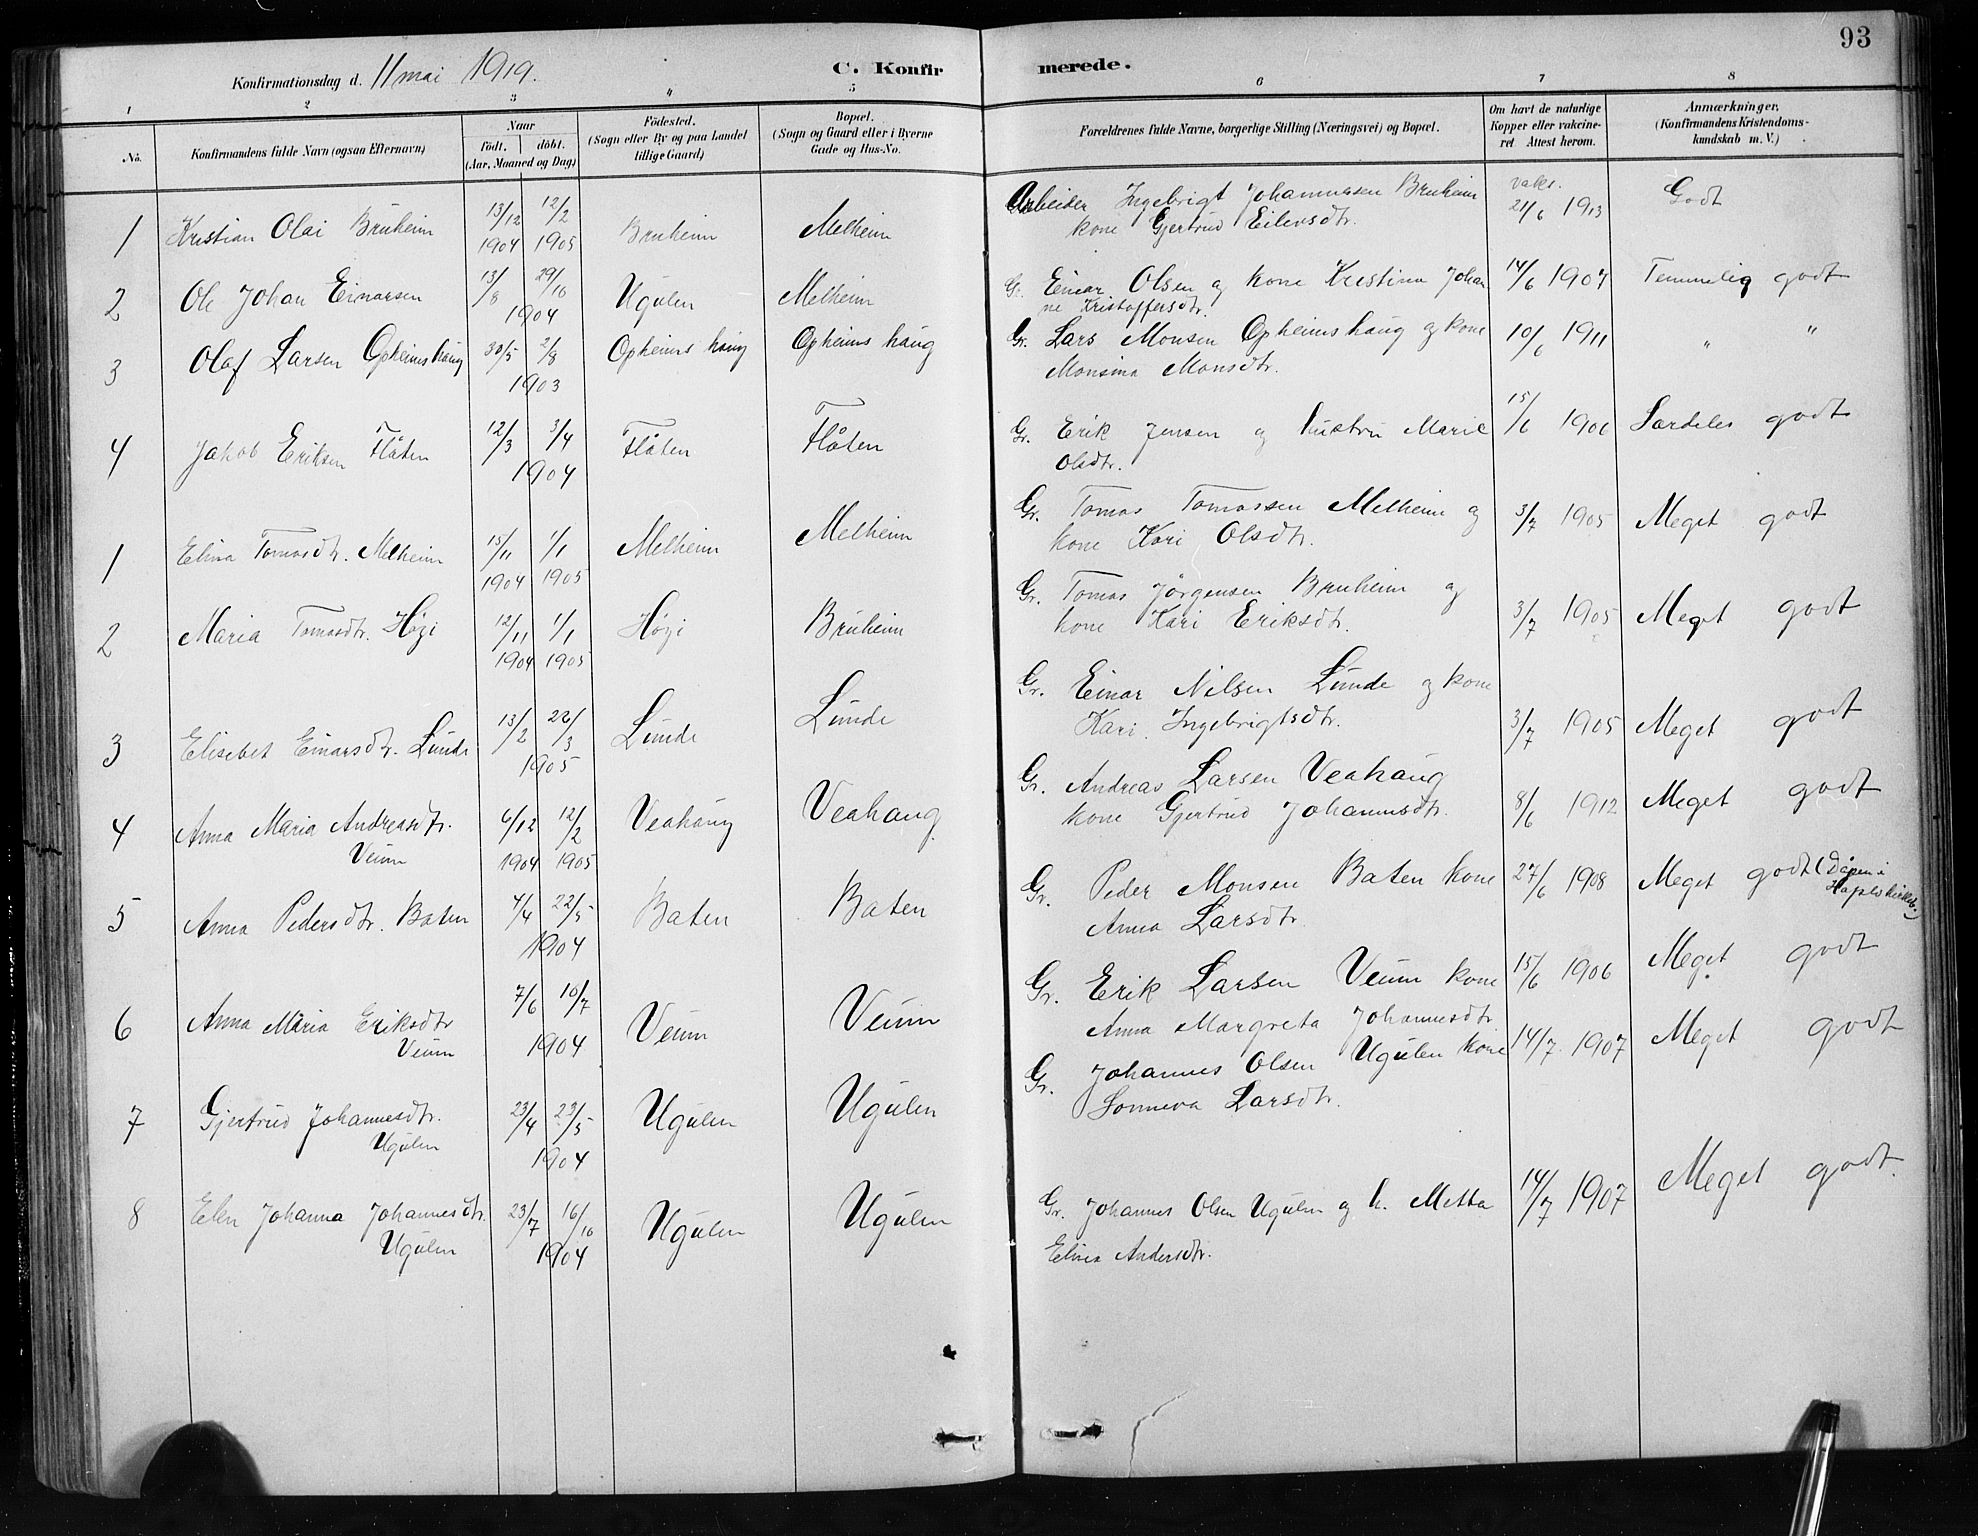 93
Konfirmationsdag d. 11 mai 1919. C. Konfirmerede.
1 2 3 4 5 6 7 8
No. Konfirmandens fulde Navn (ogsaa Efternavn) Naar födt. döbt. (Aar, Maaned og Dag) Födested. (Sogn eller By og paa Landet tillige Gaard) Bopæl. (Sogn og Gaard eller i Byerne Gade og Hus-No. Forældrenes fulde Navne, borgerlige Stilling (Næringsvei) og Bopæl. Om havt de naturlige Kopper eller vakcineret Attest herom. Anmærkninger. (Konfirmandens Kristendomskundskab m. V.)
1 Kristian Olai Bruheim 13/12 1904 12/2 1905 Bruheim Melheim Arbeider Ingebrigt Johannesen Bruheim vaks. 21/6 1913 Godt
kone Gjertrud Eilevsdtr.
2 Ole Johan Einarsen 13/8 29/10 1904 Ugulen Melheim G. Einar Olsen og kone Kristina Johan 14/6 1907 Temmelig godt
ne Kristoffersdtr.
3 Olaf Larsen Opheimshaug 30/5 2/8 1903 Opheimshaug Opheimshaug Gr. Lars Monsen Opheimshaug og kone 10/6 1911 " "
Monsina Monsdtr.
4 Jakob Eriksen Flåten 12/3 3/4 1904 Flåten Flåten Gr. Erik Jensen og hustru Marie 15/6 1906 Særdeles godt
Olsdtr.
1 Elina Tomasdtr. Melheim 15/11 1904 1/1 1905 Melheim Melheim Gr. Tomas Tomassen Melheim og 3/7 1905 Meget godt
kone Kari Olsdtr.
2 Maria Tomasdtr. Høgi 12/11 1904 1/1 1905 Høgi Bruheim Gr. Tomas Jørgensen Bruheim og 3/7 1905 Meget godt
kone Kari Eriksdtr.
3 Elisebet Einarsdtr. Lunde 13/2 22/3 1905 Lunde Lunde Gr. Einar Nilsen Lunde og kone 3/7 1905 Meget godt
Kari Ingebrigtsdtr.
4 Anna Maria Andreasdtr. 6/12 1904 12/2 1905 Veahaug Veahaug Gr. Andreas Larsen Veahaug 8/6 1912 Meget godt
Veum kone Gjertrud Johannesdtr.
5 Anna Pedersdtr. Baten 4/4 22/5 1904 Baten Baten Gr. Peder Monsen Baten kone 27/6 1908 Meget godt (Dåpen i
Anna Larsdtr.
6 Anna Maria Eriksdtr 7/6 10/7 1904 Veum Veum Gr. Erik Larsen Veum kone 15/6 1906 Meget godt
Veum Anna Margreta Johannesdtr
7 Gjertrud Johannesdtr. 23/4 23/5 1904 Ugulen Ugulen Gr. Johannes Olsen Ugulen kone 14/7 1907 Meget godt
Ugulen Sonneva Larsdtr.
8 Elen Johanna Johannesdtr. 23/7 16/10 1904 Ugulen Ugulen Gr. Johannes Olsen Ugulen og h. Metta 14/7 1907 Meget godt.
Ugulen Elina Andersdtr.